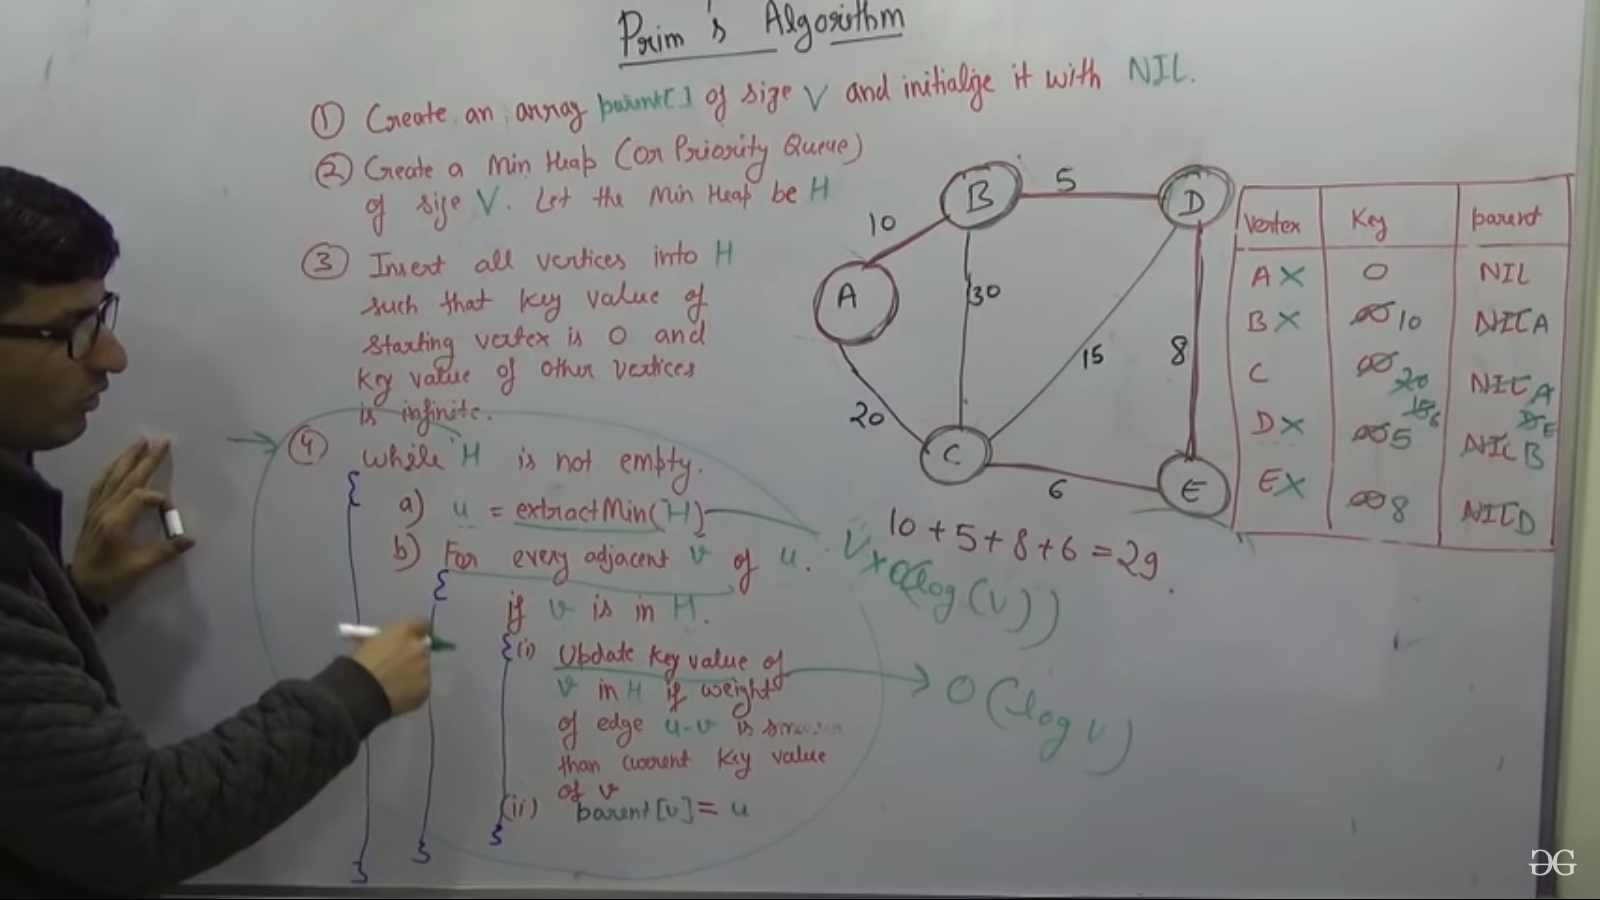 Prim's Algorithm
① Create an array parent[] of size V and initialize it with NIL.
② Create a Min Heap (or Priority Queue)
of size V. Let the Min Heap be H
③ Insert all vertices into H
such that key value of
starting vertex is 0 and
key value of other vertices
is infinite.
④ while H is not empty.
{
a) u = extractMin(H)
b) For every adjacent v of u.
{
if v is in H.
{(i) Update key value of
v in H if weight
of edge u-v is smaller
than current key value
of v
(ii) parent[v] = u
}
}
}
A
B
C
D
E
10
5
30
15
8
20
6
10 + 5 + 8 + 6 = 29.
V × O(log(V))
O(log V)
Vertex Key parent
A X 0 NIL
B X ∞ 10 NIL A
C ∞ 20 15 6 NIL A D E
D X ∞ 5 NIL B
E X ∞ 8 NIL D
GG